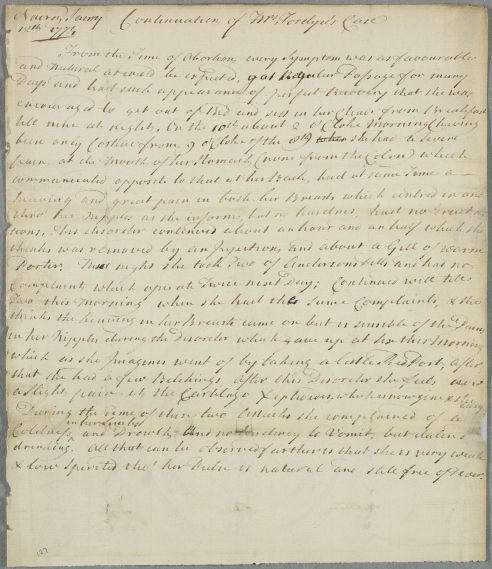 Continuation of Mrs. Fordyce's Case
12th 1774
From the Time of Abortion every Symptom was as favourable
and Natural as could be expected, got regular Passage for many
Days and had such appearance of perfect Recovery that she was
encouraged to get out of Bed and sitt in her Chair from Breakfast
till nine at night. On the 10th about 2 o'Cloke Morning (having
been only Costive from 9 o'Cloke of the 8th) she had a severe
pain at the Mouth of her Stomach (none from the Colon) which
communicated opposite to that at her Back, had at same Time a
heaving and great pain in both her Breasts which centred in and
thro' her Nipples as she informs, but no hardness, had no
this disorder continued about an hour and an half which she
thinks was removed by an Injection, and about a Gill of warm
Porter. That night she took Two of Andersons Pills and has no
Complaint, which operate Twice next Day; Continued well till
Two this Morning when she had the same Complaints, & she
thinks the heaving in her Breasts came on but is sensible of the Pain
in her Nipples during the Disorder which gave up at Six this Morning
which as she Imagines went of by taking a Little Red Port, after
that she had a few Belchings, after this Disorder she feels
a slight pain at the Cartilago Xiphoides, who has now given
easy
During the time of these two Attacks she complained of a
in her Limbs
Coldness and Drowth, and no tendency to Vomit, but
drinking. All that can be observed farther is that she is very weak
& low Spirited tho' her Pulse is natural and still free of Fever.
127